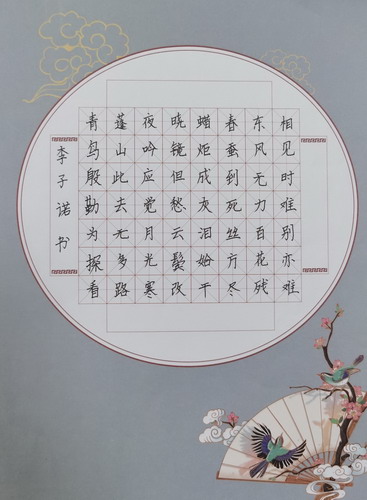 相见时难别亦难
东风无力百花残
春蚕到死丝方尽
蜡炬成灰泪始干
晓镜但愁云鬓改
夜吟应觉月光寒
蓬山此去无多路
青鸟殷勤为探看
李子诺书